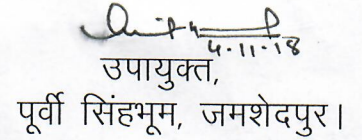 4.11.18
उपायुक्त,
पूर्वी सिंहभूम, जमशेदपुर।